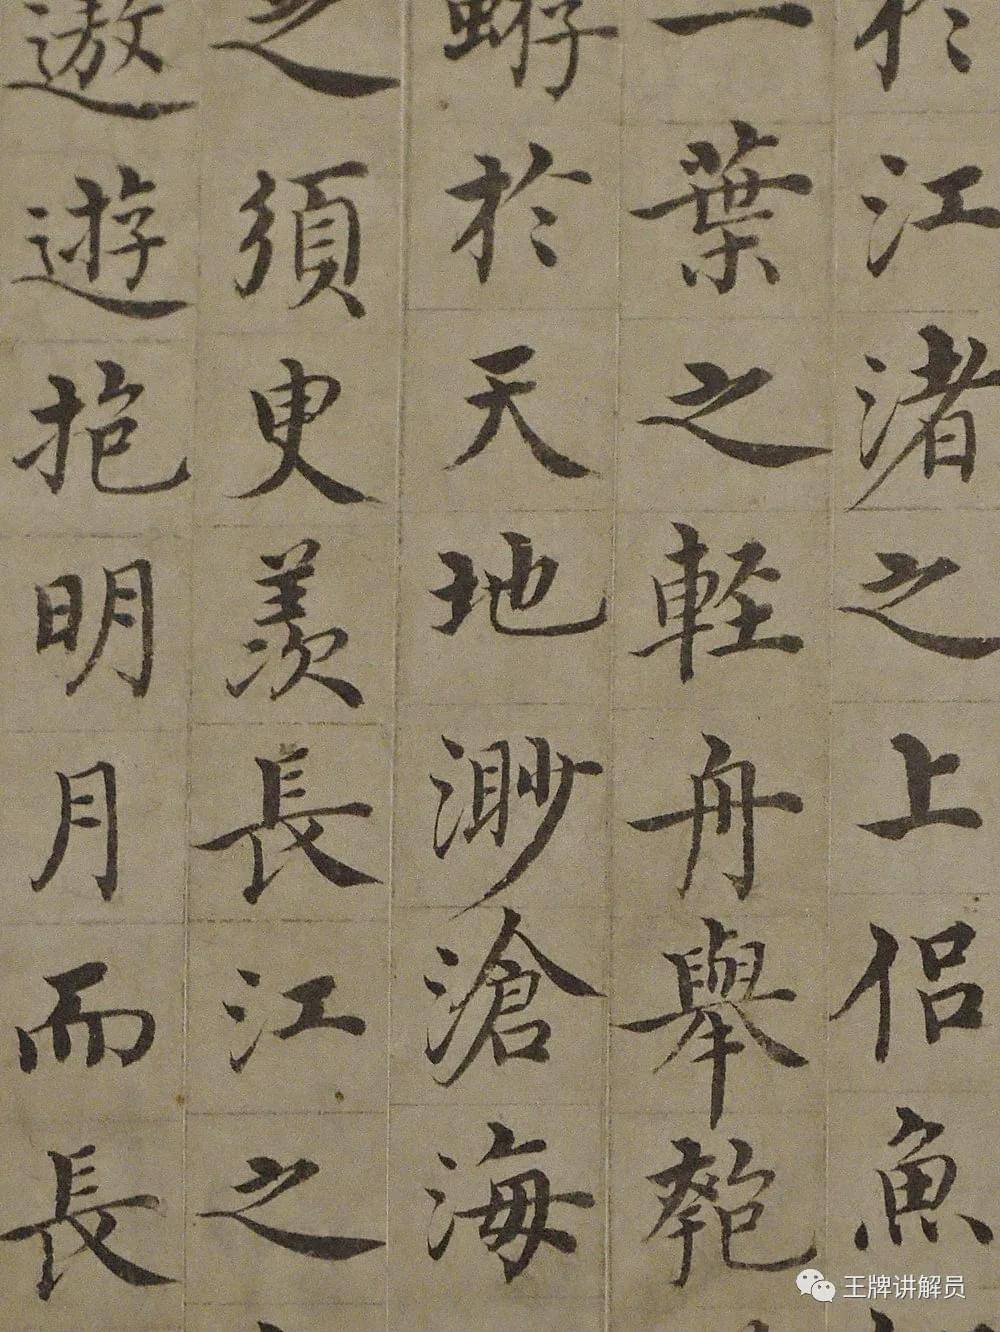 於江渚之上侣魚
一葉之輕舟舉匏
蝣於天地渺滄海
之須臾羡長江之
遨遊抱明月而長
王牌讲解员